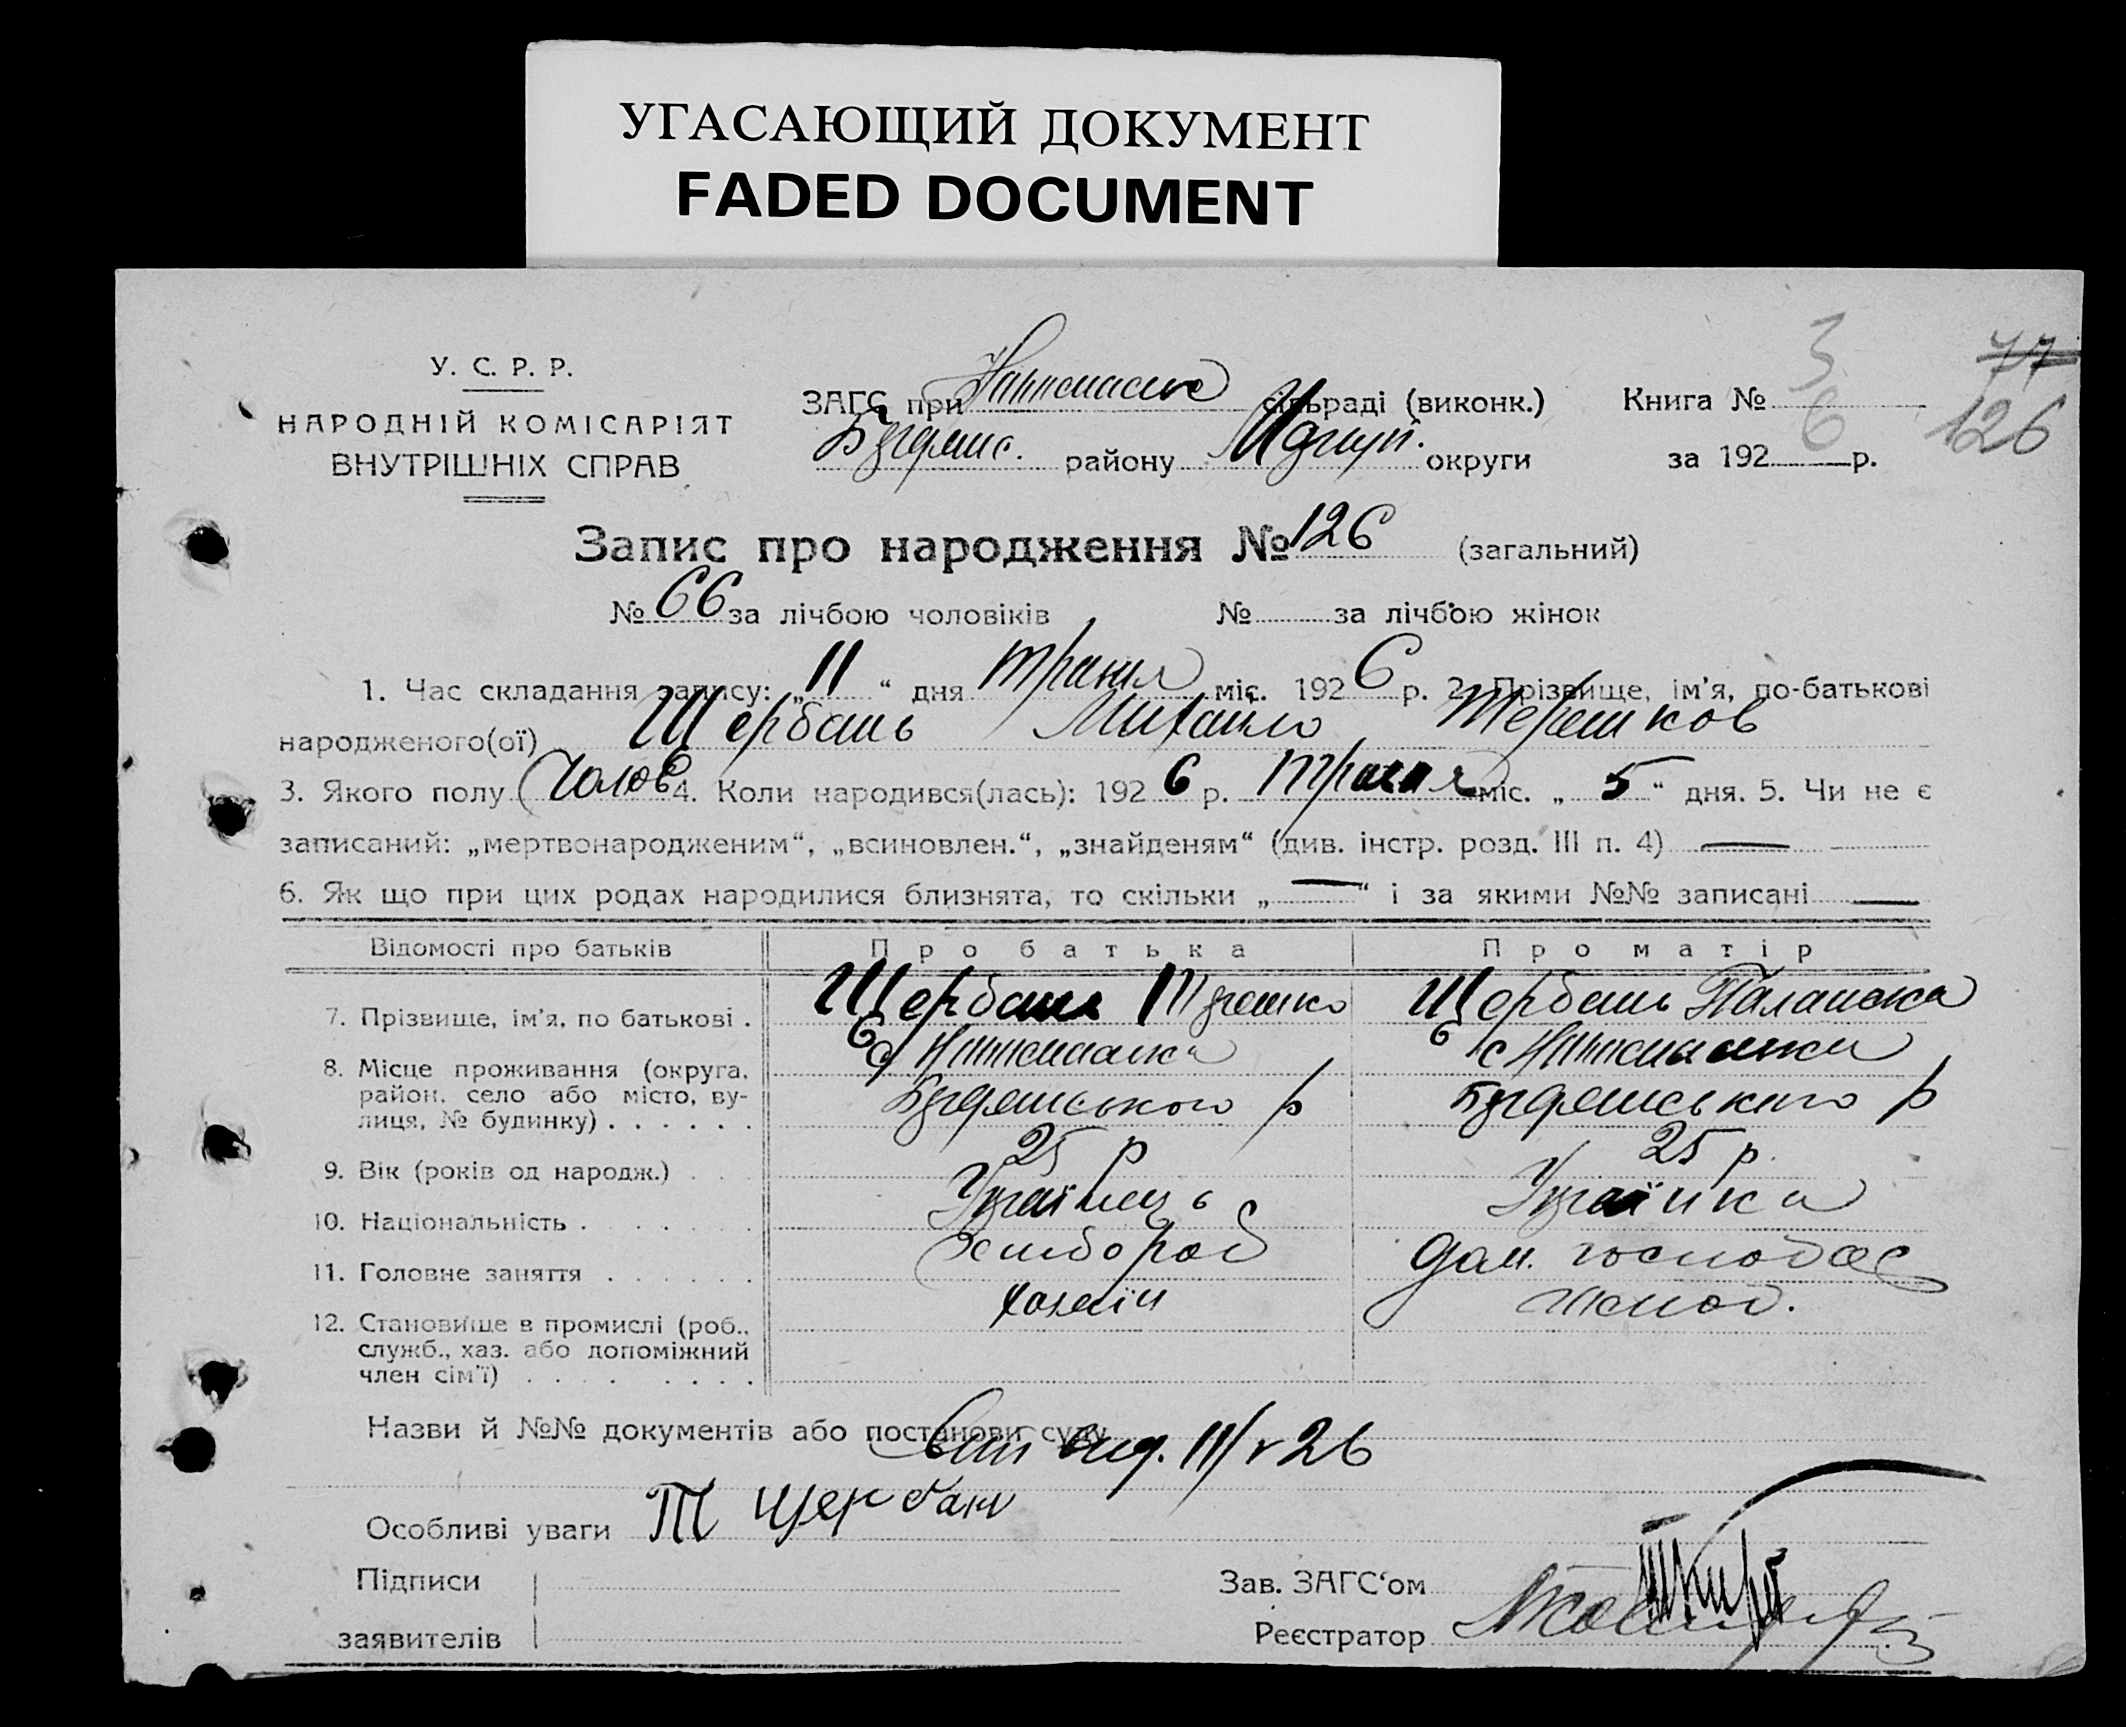 УГАСАЮЩИЙ ДОКУМЕНТ
FADED DOCUMENT
У. С. Р. Р.
НАРОДНІЙ КОМІСАРІЯТ
ВНУТРІШНІХ СПРАВ
ЗАГС при сільраді (виконк.)
району округи
Книга № 3
за 1926 р.
77
126
Запис про народження № 126 (загальний)
№ 66 за лічбою чоловіків № за лічбою жінок
1. Час складання запису: „11“ дня травня міс. 1926 р. 2. Прізвище, ім'я, по-батькові
народженого(ої) Щербань Михайло Терешков
3. Якого полу Чолов 4. Коли народився(лась): 1926 р. травня міс. „5“ дня. 5. Чи не є
записаний: „мертвонародженим“, „всиновлен.“, „знайденям“ (див. інстр. розд. III п. 4) —
6. Як що при цих родах народилися близнята, то скільки „—“ і за якими №№ записані —
Відомості про батьків Про батька Про матір
7. Прізвище, ім'я, по батькові . Щербань Щербань Палажка
8. Місце проживання (округа,
район, село або місто, ву-
лиця, № будинку) . . . . . .
9. Вік (років од народж.) . . . 25 р 25 р.
10. Національність . . . . . . . Українець Українка
11. Головне заняття . . . . . . Хлібороб дом. господар
12. Становище в промислі (роб.,
служб., хаз. або допоміжний
член сім'ї) . . . . . . . . хазяїн
Назви й №№ документів або постанови суду
Особливі уваги Т Щербань
Підписи
заявителів
Зав. ЗАГС'ом
Реєстратор